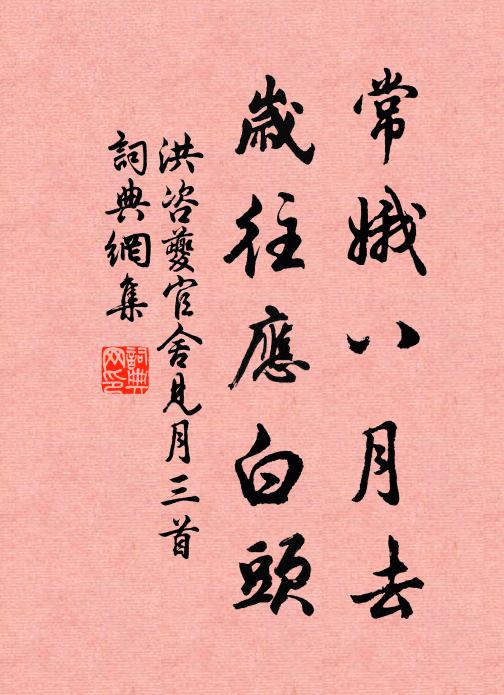 常娥八月去
歲往應白頭
洪咨夔官舍見月三首
詞典網集
詞典網印